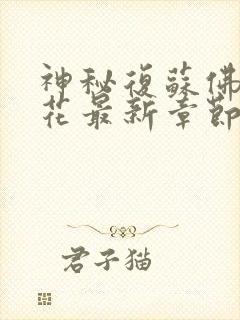 神秘復蘇佛
花最新章節
君子猫